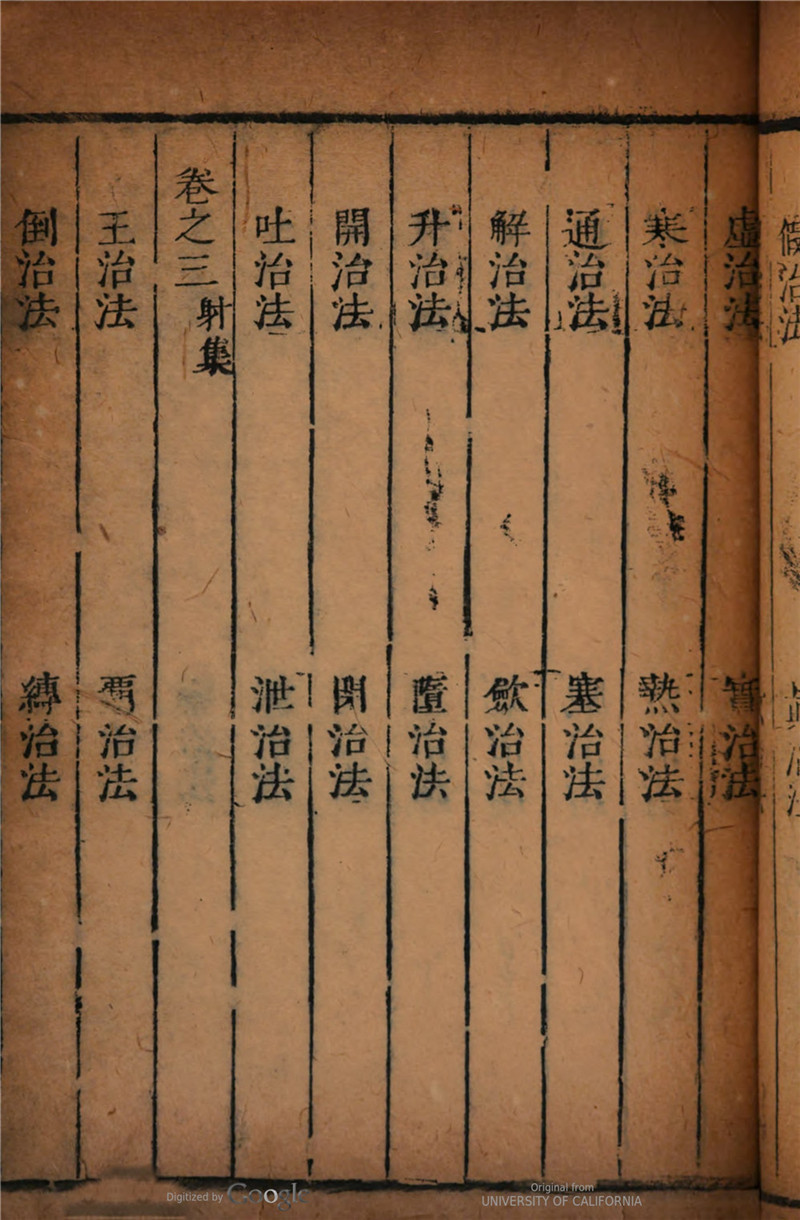 虛治法 實治法
寒治法 熱治法
通治法 塞治法
解治法 斂治法
升治法 墮治法
開治法 閉治法
吐治法 泄治法
卷之三 射集
王治法 霸治法
倒治法 縛治法
Digitized by Google
Original from
UNIVERSITY OF CALIFORNIA